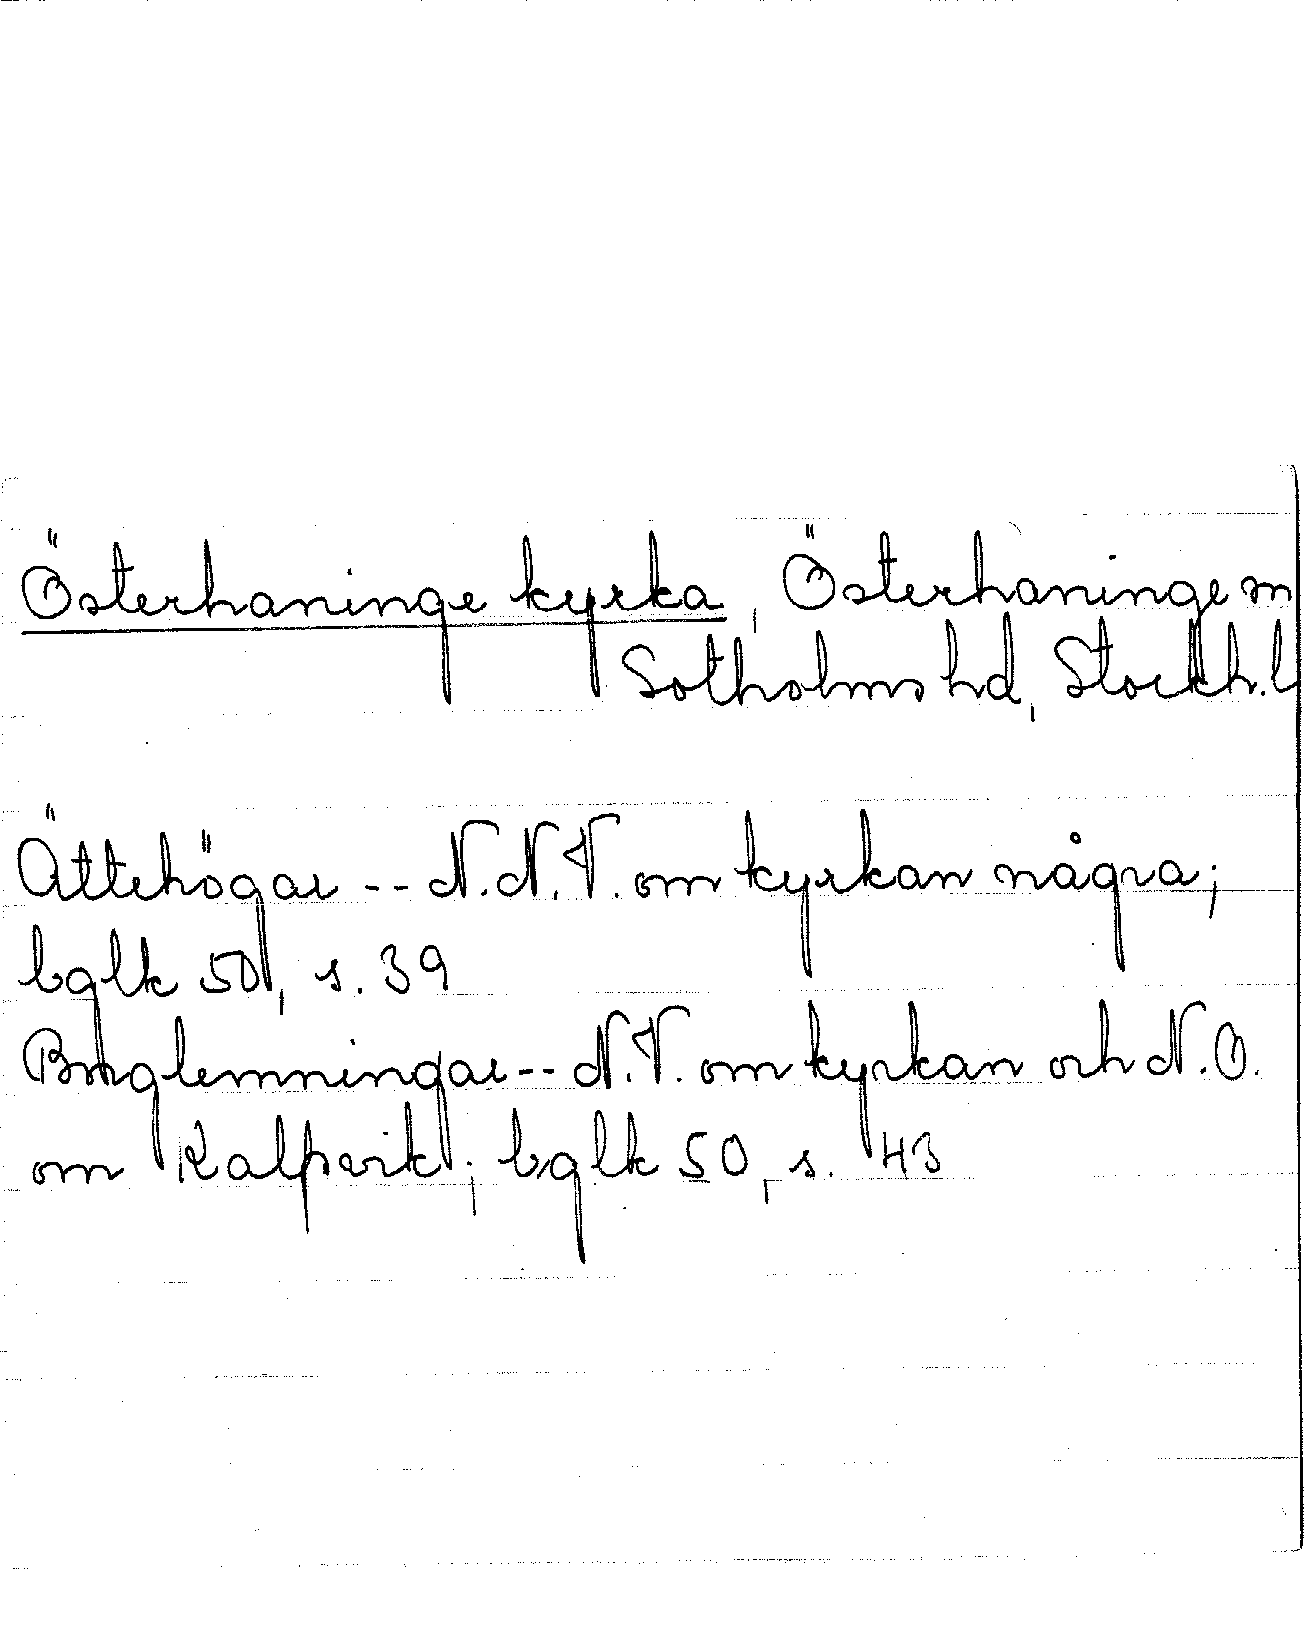 Österhaninge kyrka, Österhaninge sn
Sotholms hd, Stockh. l
Ättehögar -- N.N.V. om kyrkan några;
bglk 50, s. 39
Borglemningar -- N.V. om kyrkan och N.O.
om Kalfsvik; bglk 50, s. 43